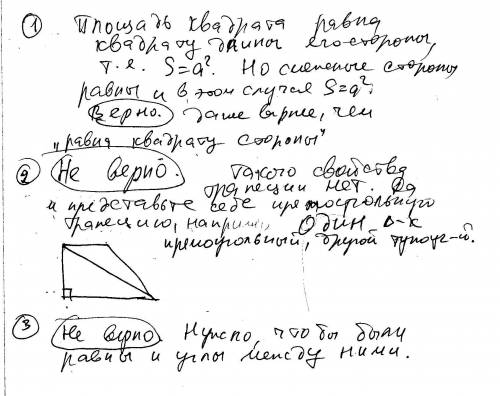 ① Площадь квадрата равна
квадрату длины его стороны,
т.е. S=a². Но смежные стороны
равны и в этом случае S=a².
Верно. Даже вернее, чем
"равна квадрату стороны"
② Не верно. Такого свойства
трапеции нет. Да
и представьте себе прямоугольную
трапецию, наприм., Один Δ-к
прямоугольный, другой тупоуг-й.
③ Не верно. Нужно, чтобы были
равны и углы между ними.